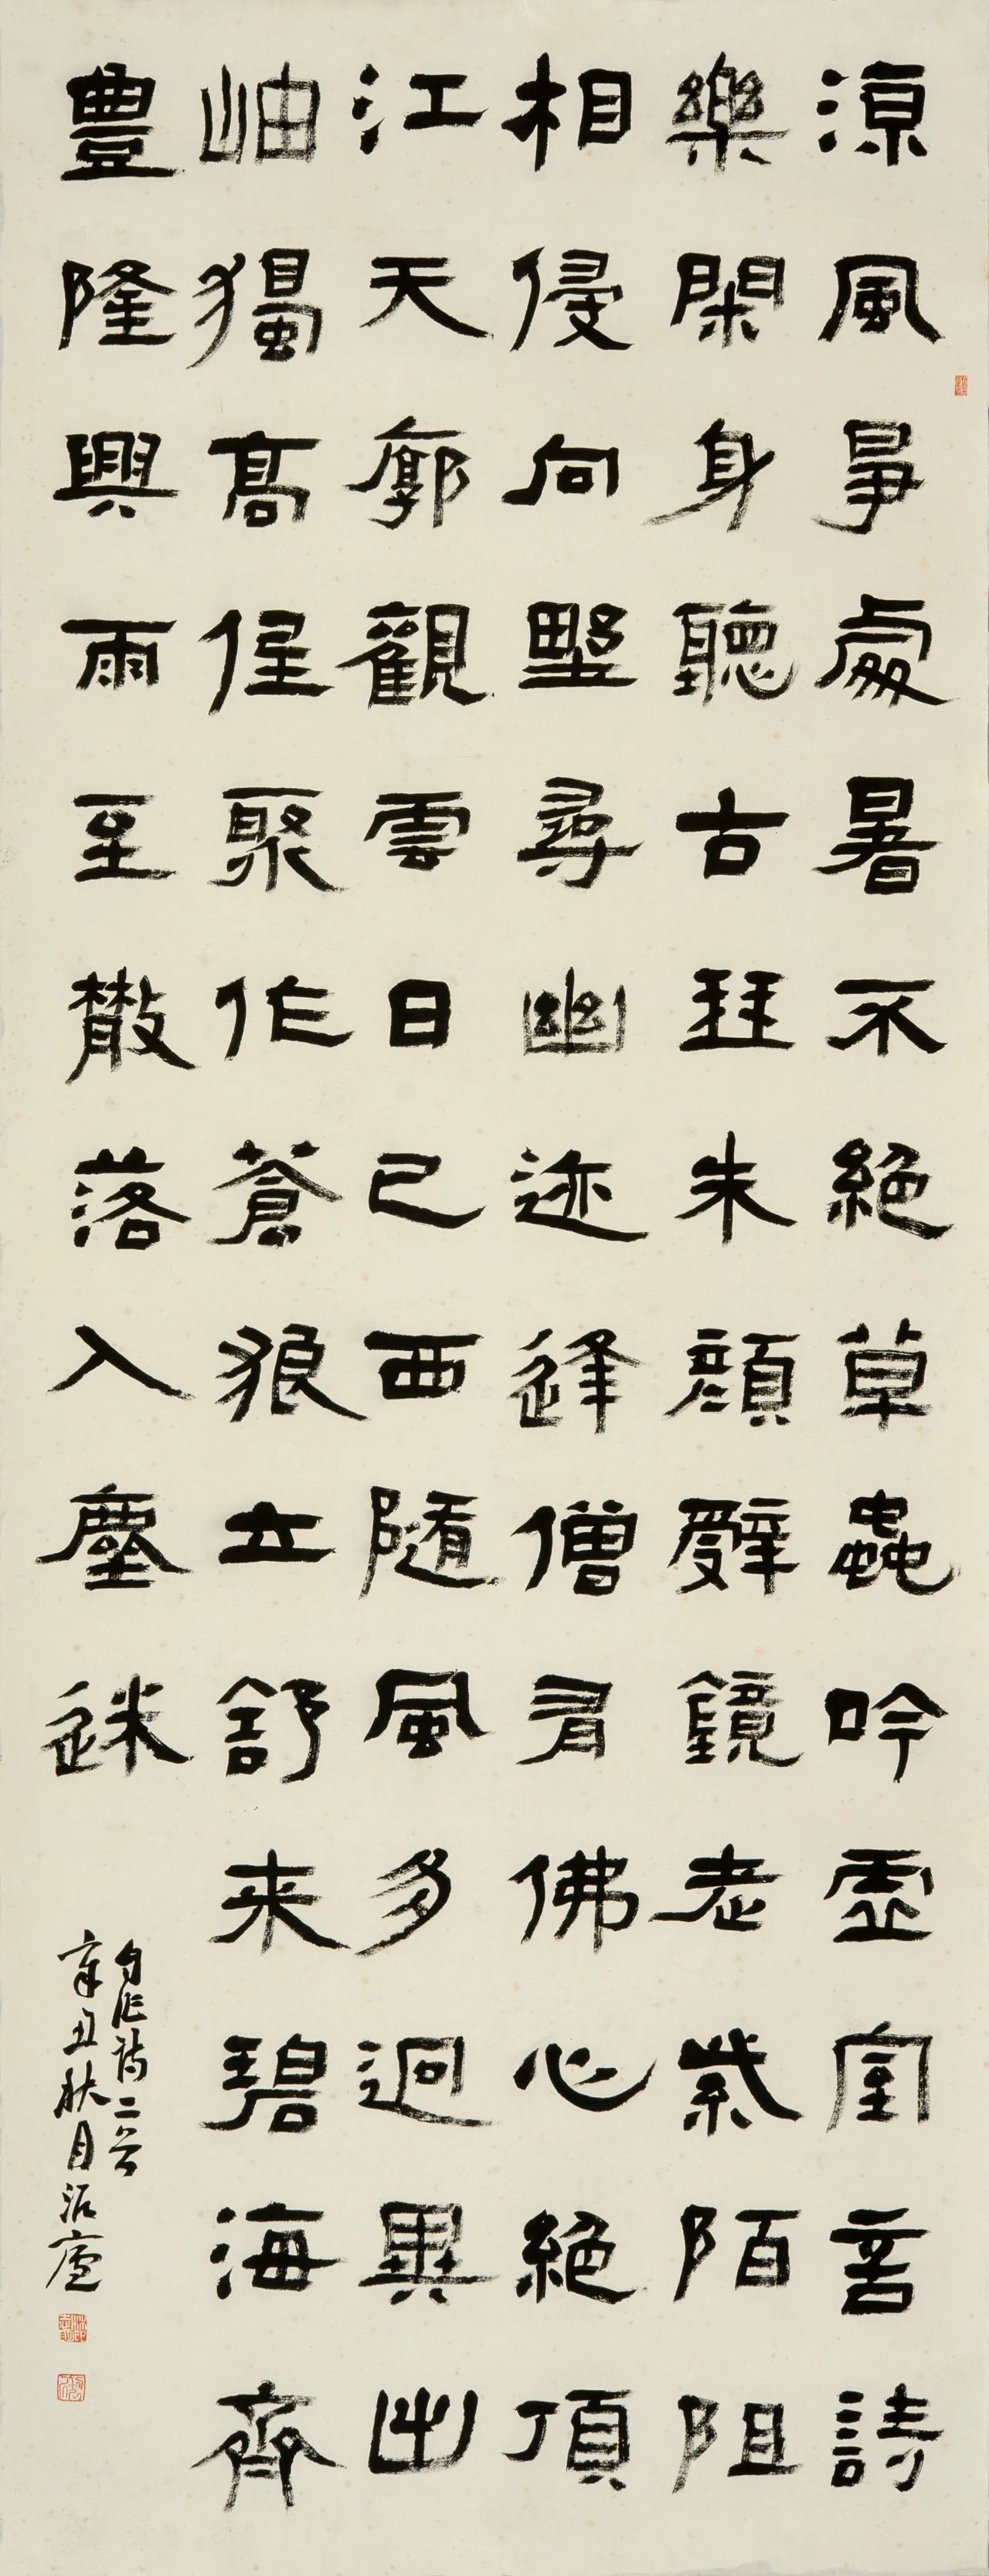 涼風爭處暑不絕草蟲吟虛室言詩
樂閑身聽古琴朱顏辭鏡老紫陌阻
相侵向野尋幽迹逢僧有佛心絕頂
江天廓觀雲日已西隨風多迥異出
岫獨高低聚作蒼狼立舒来碧海齊
豐隆興雨至散落入塵迷
自作詩二首
辛丑秋月廬